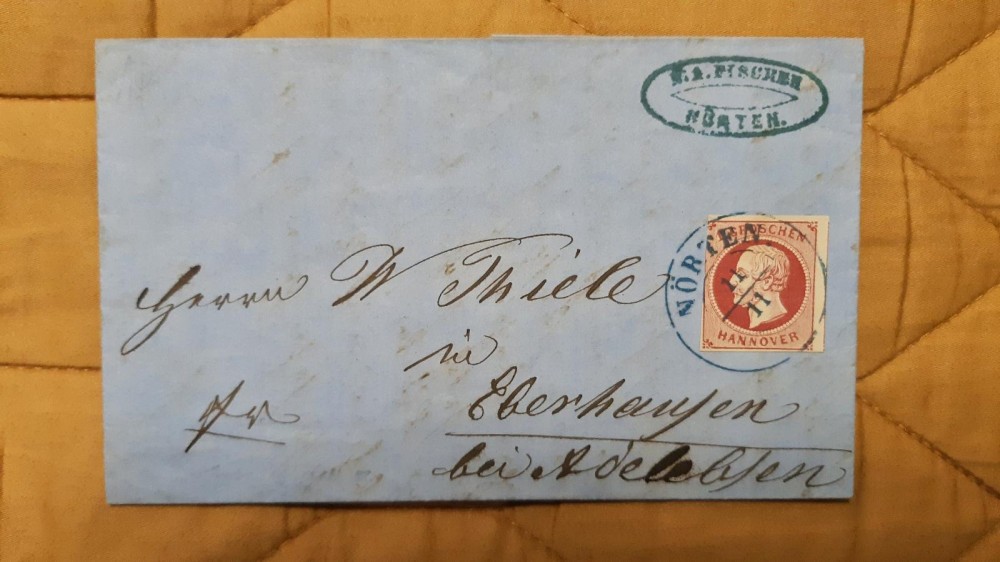 M.A. FISCHER
NÖRTEN.
GROSCHEN
HANNOVER
NÖRTEN
11/11
Herrn W Thiele
in
Eberhausen
fr
bei Adelebsen